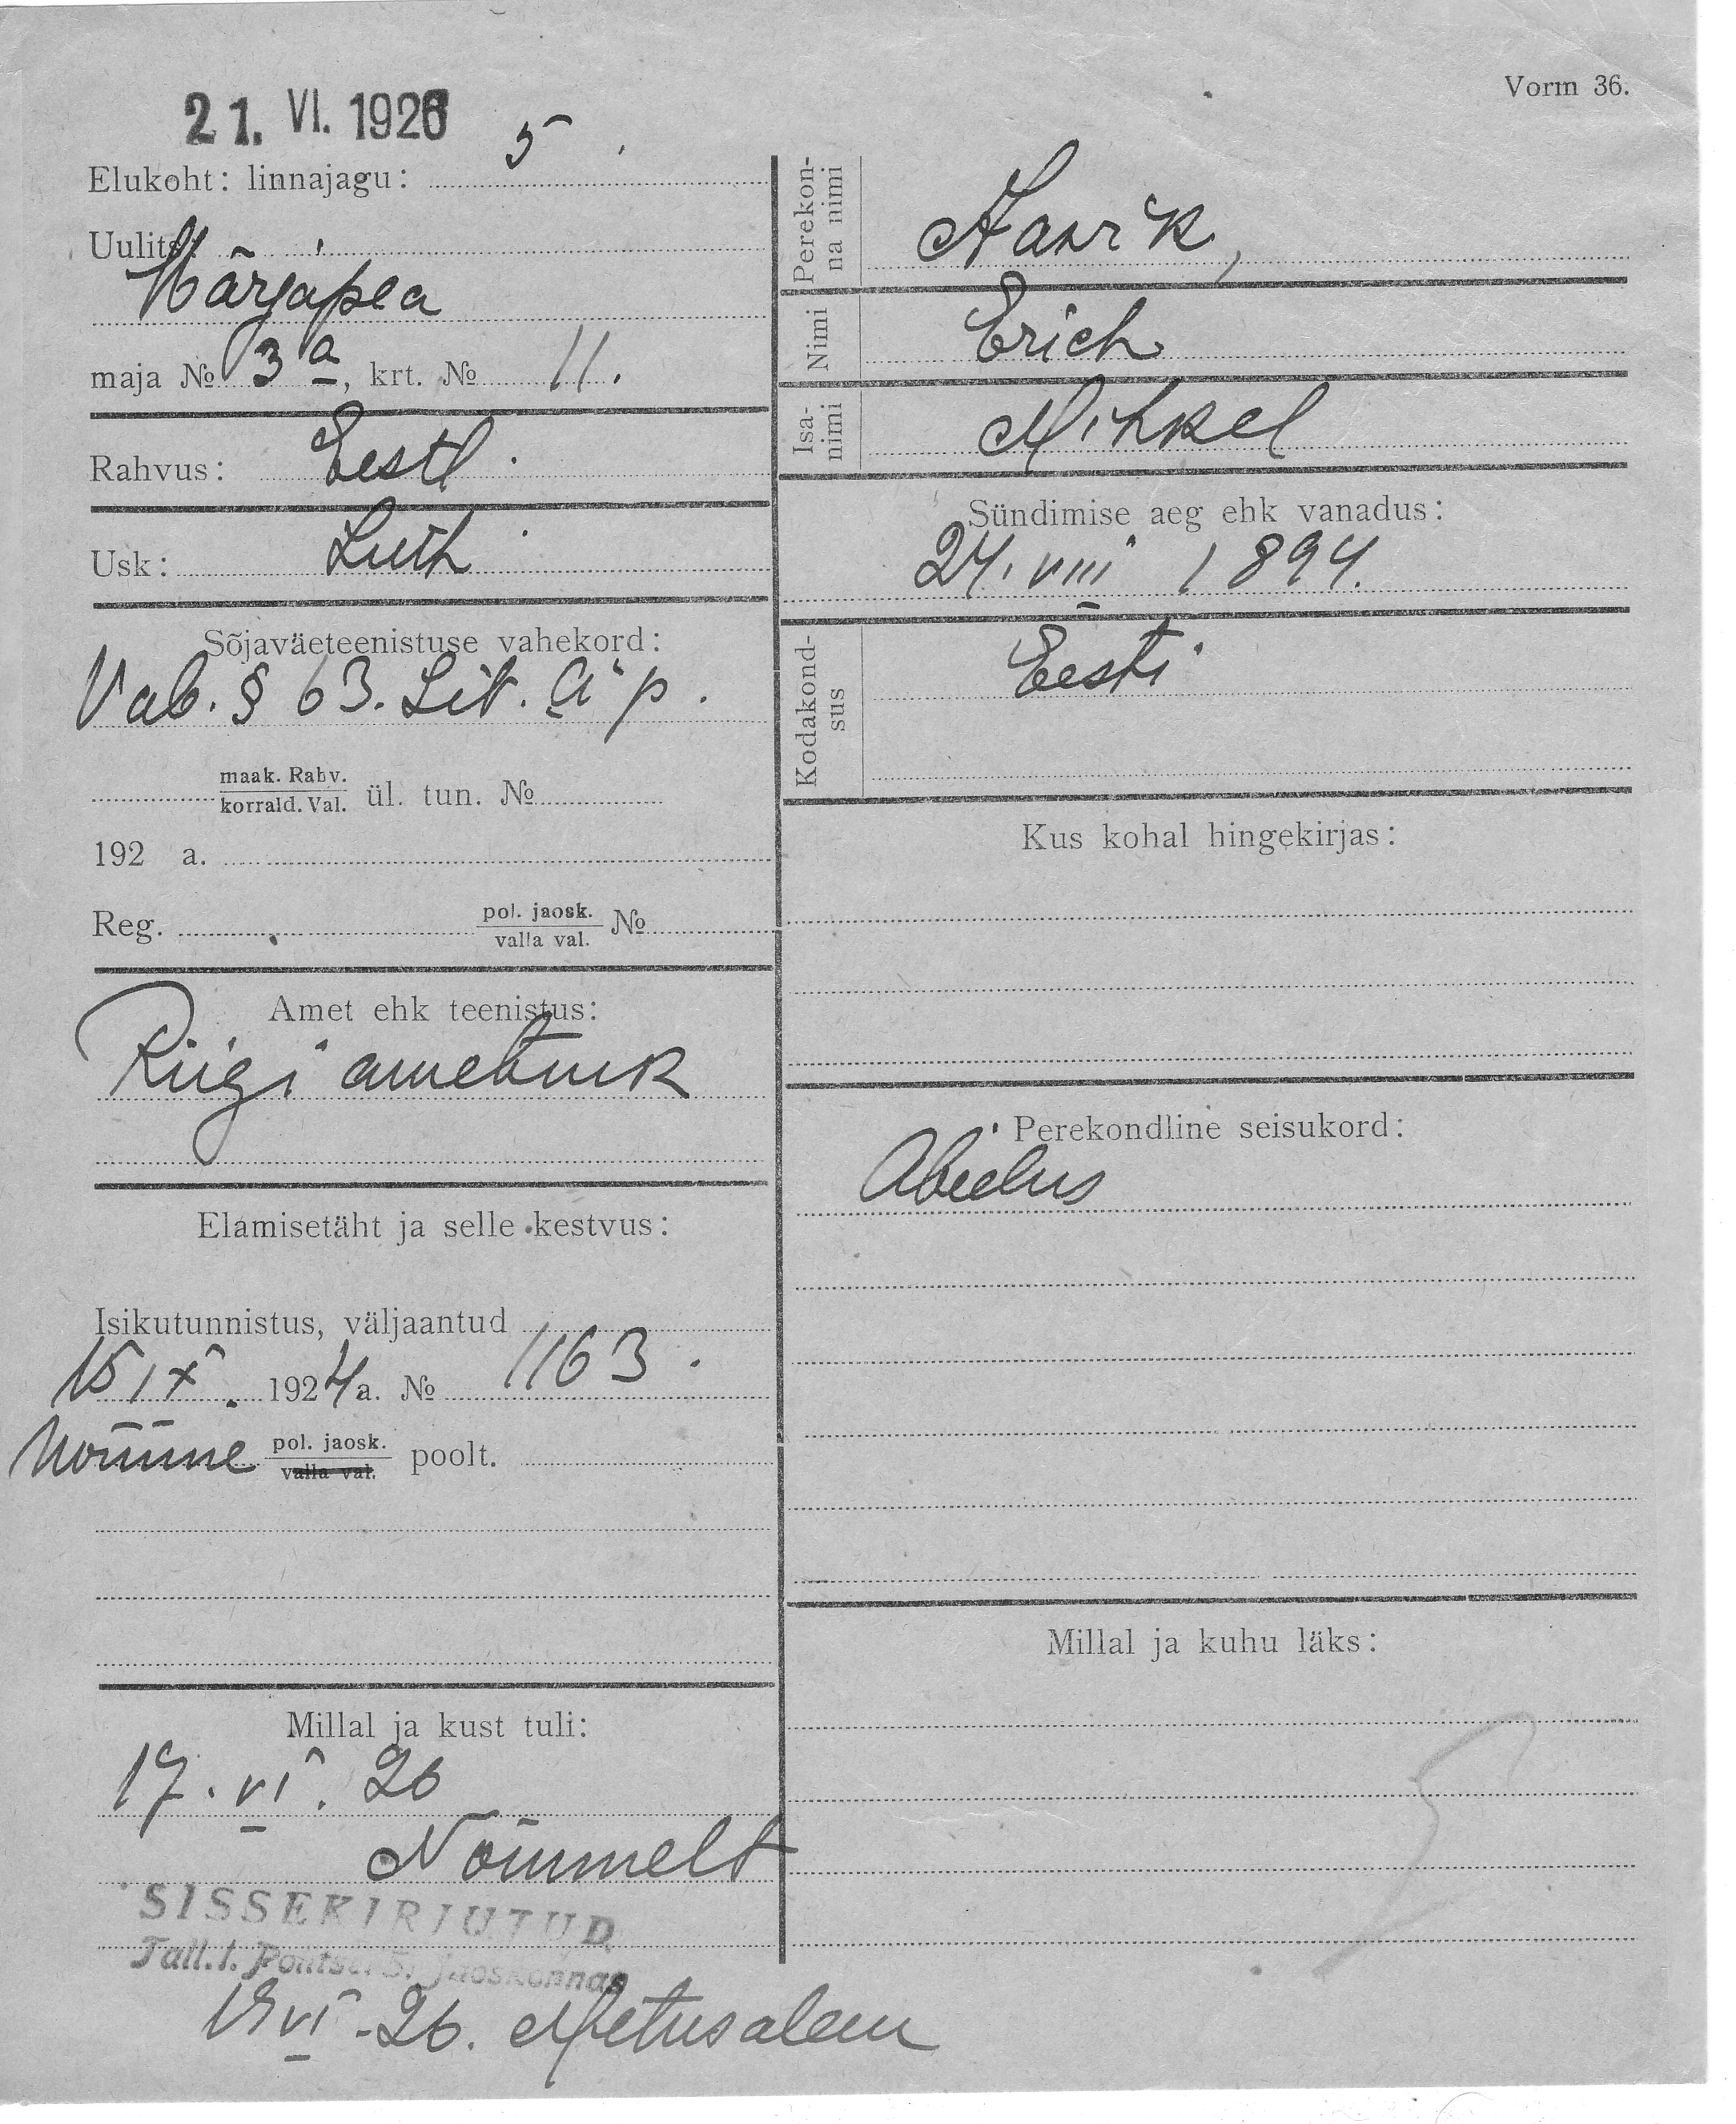 Vorm 36.
21. VI. 1926
Elukoht: linnajagu: 5.
Uulits:
Härjapea
maja № 3a, krt. № 11.
Rahvus: Eestl.
Usk: Luth.
Sõjaväeteenistuse vahekord:
Vab. § 63. Lit. A p.
maak. Rahv.
korrald. Val. ül. tun. №
192 a.
Reg. pol. jaosk. №
valla val.
Amet ehk teenistus:
Riigi ametnik
Elamisetäht ja selle kestvus:
Isikutunnistus, väljaantud
15 IX. 1924 a. № 1163.
Nõmme pol. jaosk. poolt.
valla val.
Millal ja kust tuli:
17. VI. 26
Nõmmelt
SISSEKIRJUTUD
Tall. l. Politsei 5. jaoskonnas
VI - 26. Metusalem
Perekonna nimi
Nimi Erich
Isanimi Mihkel
Sündimise aeg ehk vanadus:
24. VIII 1894.
Kodakondsus Eesti
Kus kohal hingekirjas:
Perekondline seisukord:
Abielus
Millal ja kuhu läks: